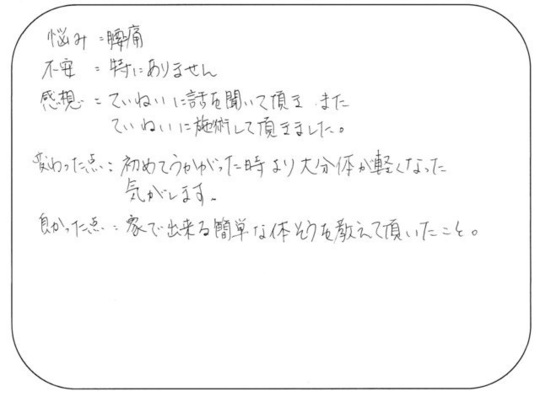 悩み：腰痛
不安：特にありません
感想：ていねいに話を聞いて頂き また
ていねいに施術して頂きました。
変わった点：初めてうかがった時より大分体が軽くなった
気がします。
良かった点：家で出来る簡単な体そうを教えて頂いたこと。